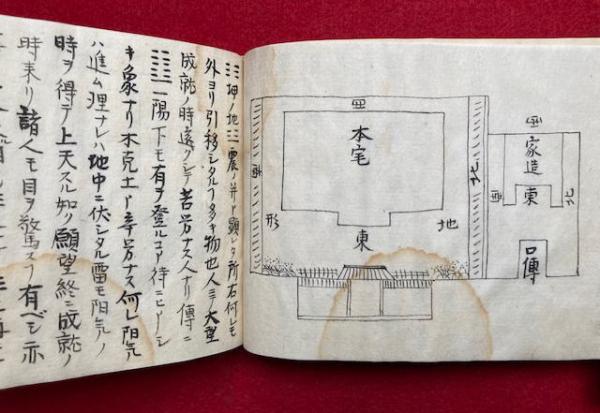 ☷坤ノ地☳震ノ并ヲ顕レタ所右何レモ
外ヨリ引移シタルヿ多キ物也人ニ大望
成就ノ時遠クシテ苦労ナス人ナリ傳ニ
一陽下モ有ヲ登ル待ニヒトシ
キ象ナリ木克土ト辛労ナス何レ陽気
ハ進ム理ナレハ地中ニ伏シタル雷モ陽気ノ
時ヲ得テ上天スル如ク願望終ニ成就ノ
時来リ諸人モ目ヲ驚スヿ有ベシ亦
西
家造
東
北
口傳
西
本宅
東
北
地
形